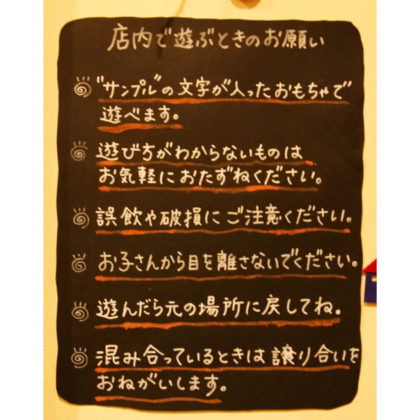 店内で遊ぶときのお願い
"サンプル"の文字が入ったおもちゃで
遊べます。
遊び方がわからないものは
お気軽におたずねください。
誤飲や破損にご注意ください。
お子さんから目を離さないでください。
遊んだら元の場所に戻してね。
混み合っているときは譲り合いを
おねがいします。